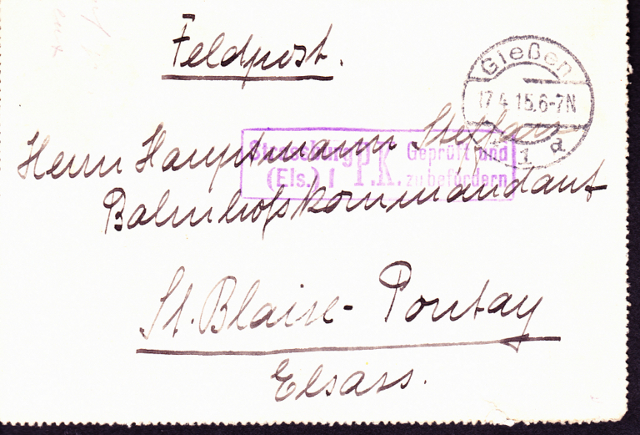 Feldpost.
Gießen
17.4.15.6-7N
1 a
Herrn Hauptmann
Strassburg P.K. Geprüft und
(Els.) 1 zu befördern
Bahnhofskommandant
St. Blaise-Poutay
Elsass.